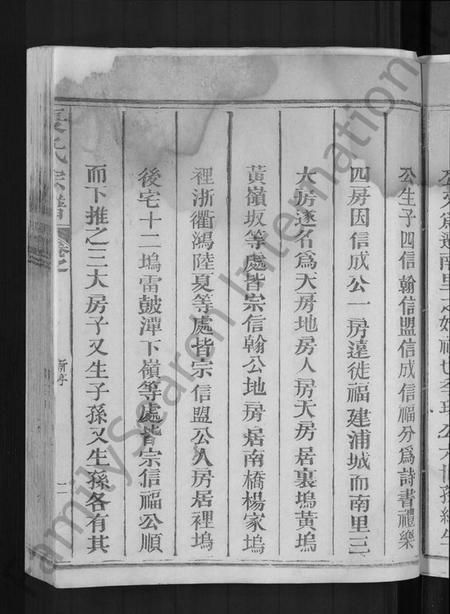 公生子四信翰信盟信成信福分爲詩書禮樂
四房因信成公一房遠徙福建浦城而南里三
大房遂名爲天地房人房天房居裏塢黃塢
黃嶺坂等處皆宗信翰公地房居南橋楊家塢
裡浙衢鴻陸夏等處皆宗信盟公人房居裡塢
後宅十二塢雷皷潭下嶺等處皆宗信福公順
而下推之三大房子又生子孫又生孫各有其
氏宗譜
新序
FamilySearch International